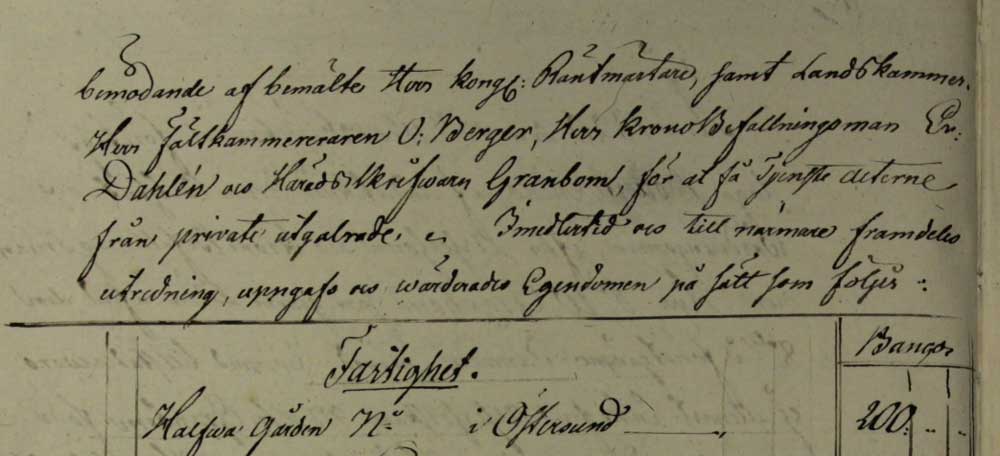 bemödande af bemälte Herr Kongl: Räntmästare, samt Landskammer.
Herr Fältkammereraren O: Berger, Herr KronoBefallningsman Er:
Dahlén och HäradsSkrifwaren Granbom, för at få Tjenste acterne
från private utgalrade. Imedlertid och till närmare framdeles
utredning, upngafs och wärderades Egendomen på sätt som följer:
Fastighet. Banco
Halfwa Gården No i Östersund 200: " "